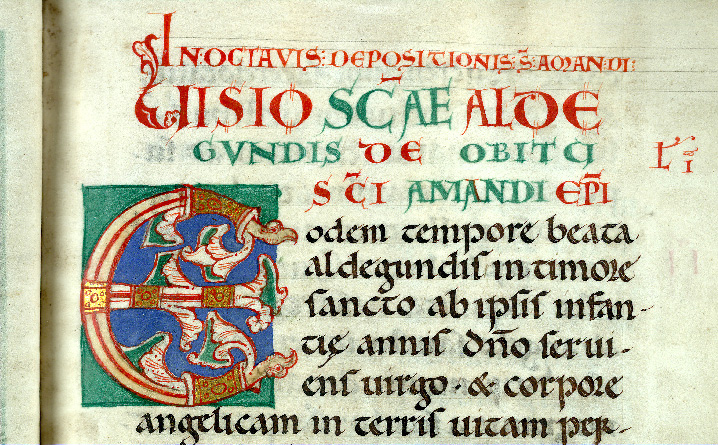 IN:OCTAVIS:DEPOSITIONIS:S̄:AMANDI:
VISIO SC̄AE ALDE
GVNDIS DE OBITV
SC̄I AMANDI EP̄I
L̄I
Eodem tempore beata
aldegundis in timore
sancto ab ipsis infan-
tię annis dn̄o serui-
ens uirgo · & corpore
angelicam in terris uitam per-